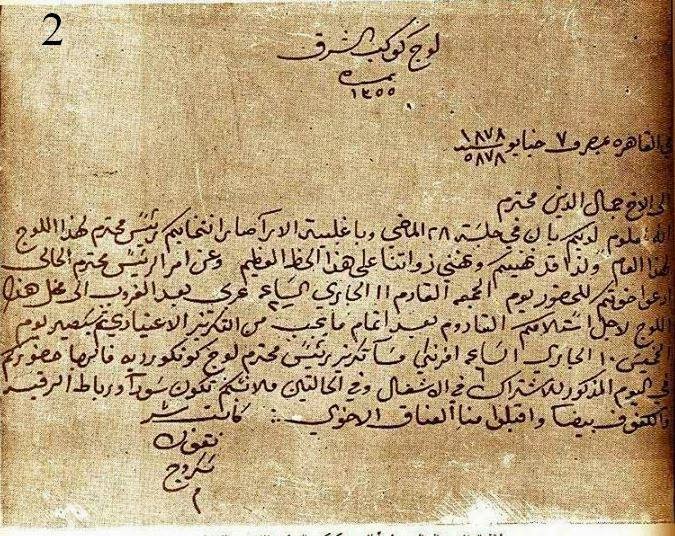 2
لوج كوكب الشرق
نمرة
١٣٥٥
في القاهره بمصر في ٧ جنايو سنة ١٨٧٨
٥٨٧٨
الى الاخ جمال الدين محترم
انه معلوم لديكم بان في جلسة ٢٨ الماضي وباغلبية الارآ صار انتخابكم رئيس محترم لهذا اللوج
لهذا العام ولذا قد نهنيكم ونهني ذواتنا على هذا الحظ العظيم وعن امر الرئيس محترم الحالي
ادعو اخوتكم للحضور يوم الجمعه القادم ١١ الجاري الساعه ٢ عربي بعد الغروب الى محفل هذا
اللوج لاجل استلامكم القادوم بعد اتمام ما يجب من التكريز الاعتيادي ثم سيصير يوم
الخميس ١٠ الجاري الساعه ٦ افرنكي مسآ تكريز رئيس محترم لوج كونكورديه فالرجا حضوركم
في اليوم المذكور للاشتراك في الاشغال وفي الحالتين ملابسكم تكون سودآ ورباط الرقبه
والكفوف بيضا واقبلوا منا العناق الاخوي
كاتب سر
نقولا
سكروج